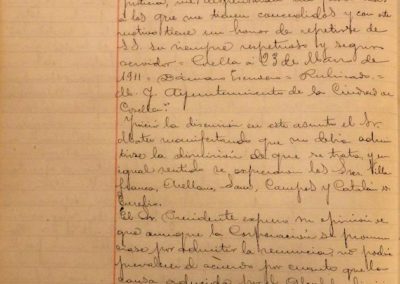 a los que me tienen concedidos y con este
motivo tiene un honor de repetirse de
S.S. su siempre respetuoso y seguro
servidor = Cuella a 23 de Marzo de
1911 = Dámaso = Rubricado. =
M. I. Ayuntamiento de la Ciudad de
Inició la discusión en este asunto el Sr.
manifestando que no debía admi-
tirse la dimisión de que se trata, y en
igual sentido se expresaron los Sres. Villa-
franca, Arellano, Sanz, Campos y Catalán D.
El Sr. Presidente expuso su opinión de
que aunque la Corporación se pronun-
ciase por admitir la renuncia, no podía
prevalecer el acuerdo por cuanto que la
causa aducida por el